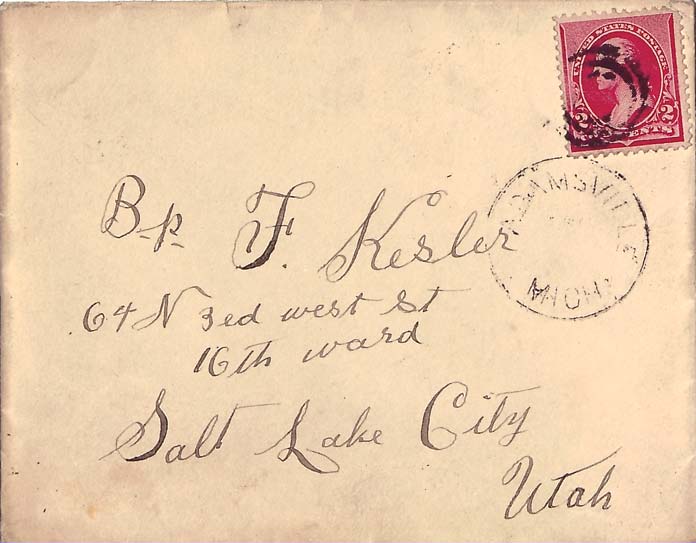 UNITED STATES POSTAGE
2 CENTS 2
ADAMSVILLE
MICH
Bp. F. Kesler
64 N 3ed west St
16th ward
Salt Lake City
Utah